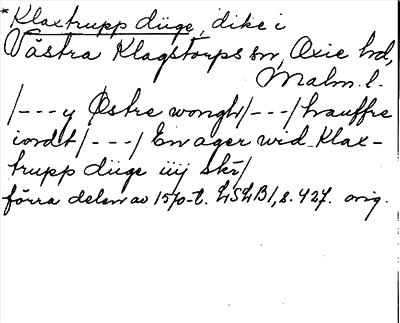 *Klaxtrupp düge, dike i
Västra Klagstorps sn, Oxie hd,
Malm. l.
/---y Østre wongh/---/hauffre
iordt/---/ En ager wid Klax-
trupp düge iiij skr/
förra delen av 1570-t. LSLB1, s. 427. orig.